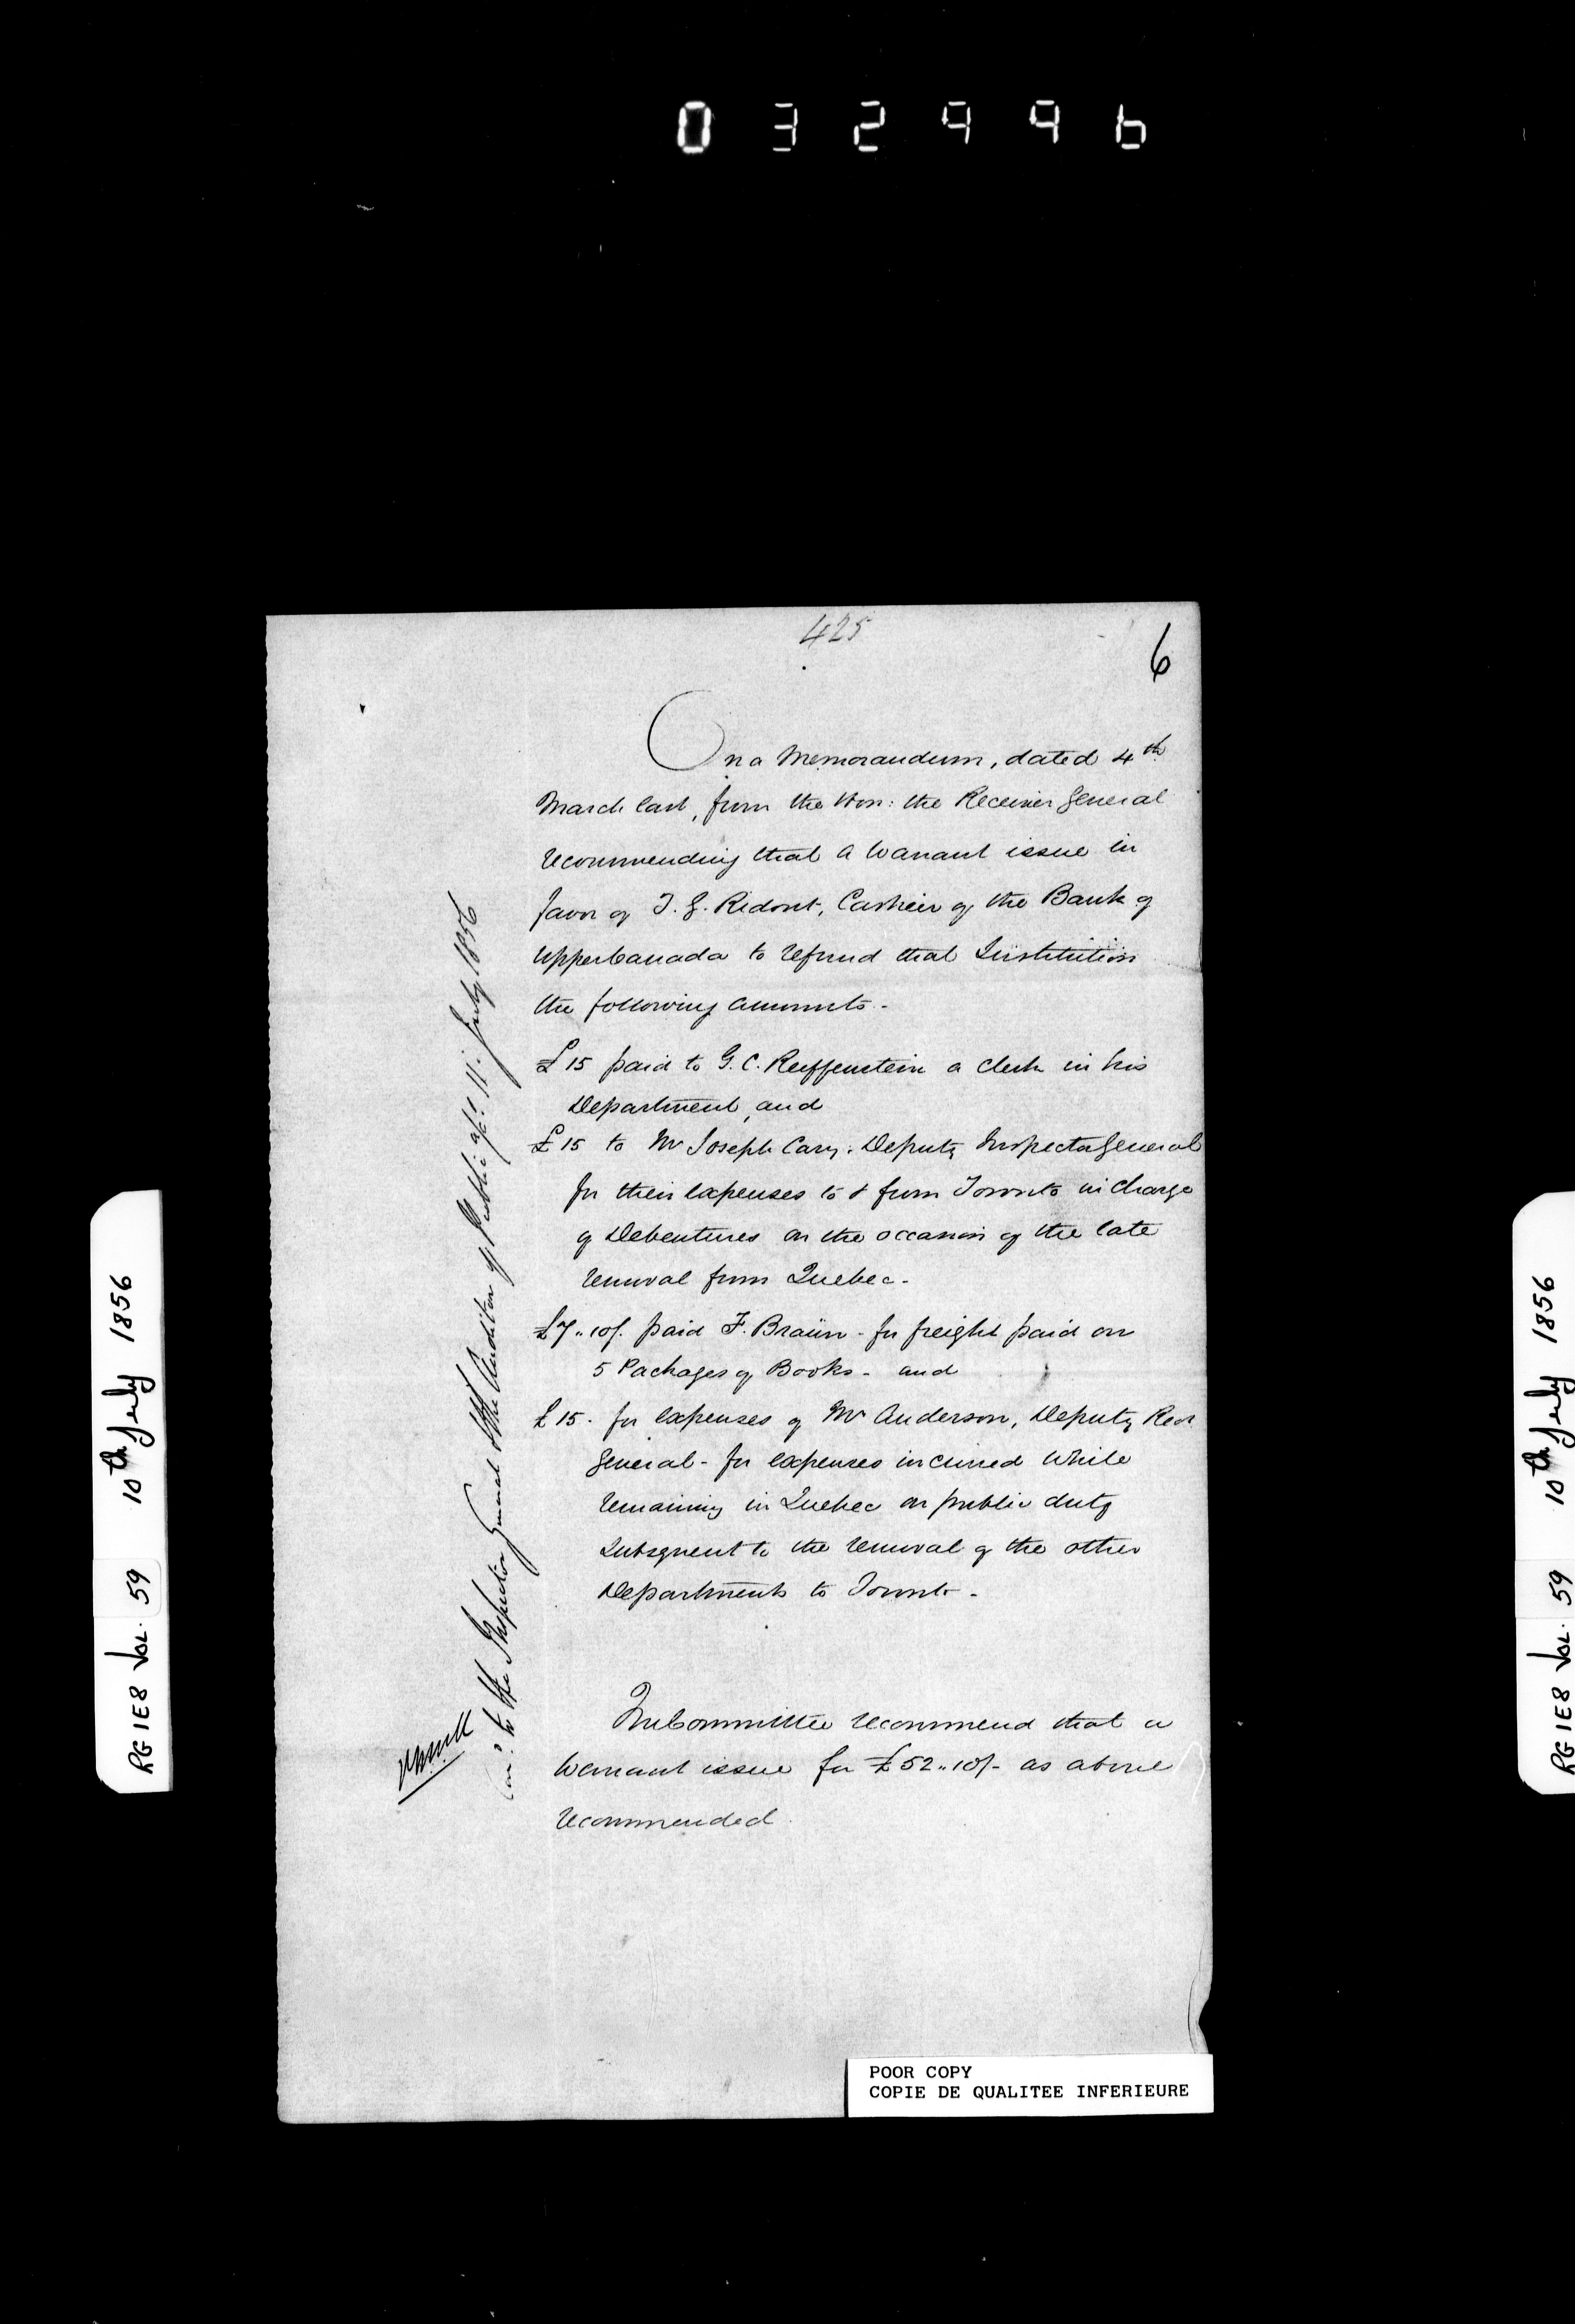 032996
425
6
On a Memorandum, dated 4th
March last, from the Hon: the Receiver General
recommending that a Warrant issue in
favor of T. G. Ridout, Cashier of the Bank of
Upper Canada to refund that Institution
the following amounts -
£15 paid to G. C. Reiffenstein a Clerk in his
Department, and
£15 to Mr Joseph Cary, Deputy Inspector General
for their expenses to & from Toronto in charge
of Debentures on the occasion of the late
removal from Quebec -
£7..10/. paid F. Braün - for freight paid on
5 Packages of Books - and
£15. for expenses of Mr Anderson, Deputy Recr
General - for expenses incurred while
remaining in Quebec on public duty
Subsequent to the removal of the other
Departments to Toronto -
The Committee recommend that a
Warrant issue for £52..10/- as above
recommended.
to the Inspector General & the Auditor of Public a/cs 11. July 1856
RG 1E8 Vol. 59 10th July 1856
RG 1E8 Vol. 59 10th July 1856
POOR COPY
COPIE DE QUALITEE INFERIEURE